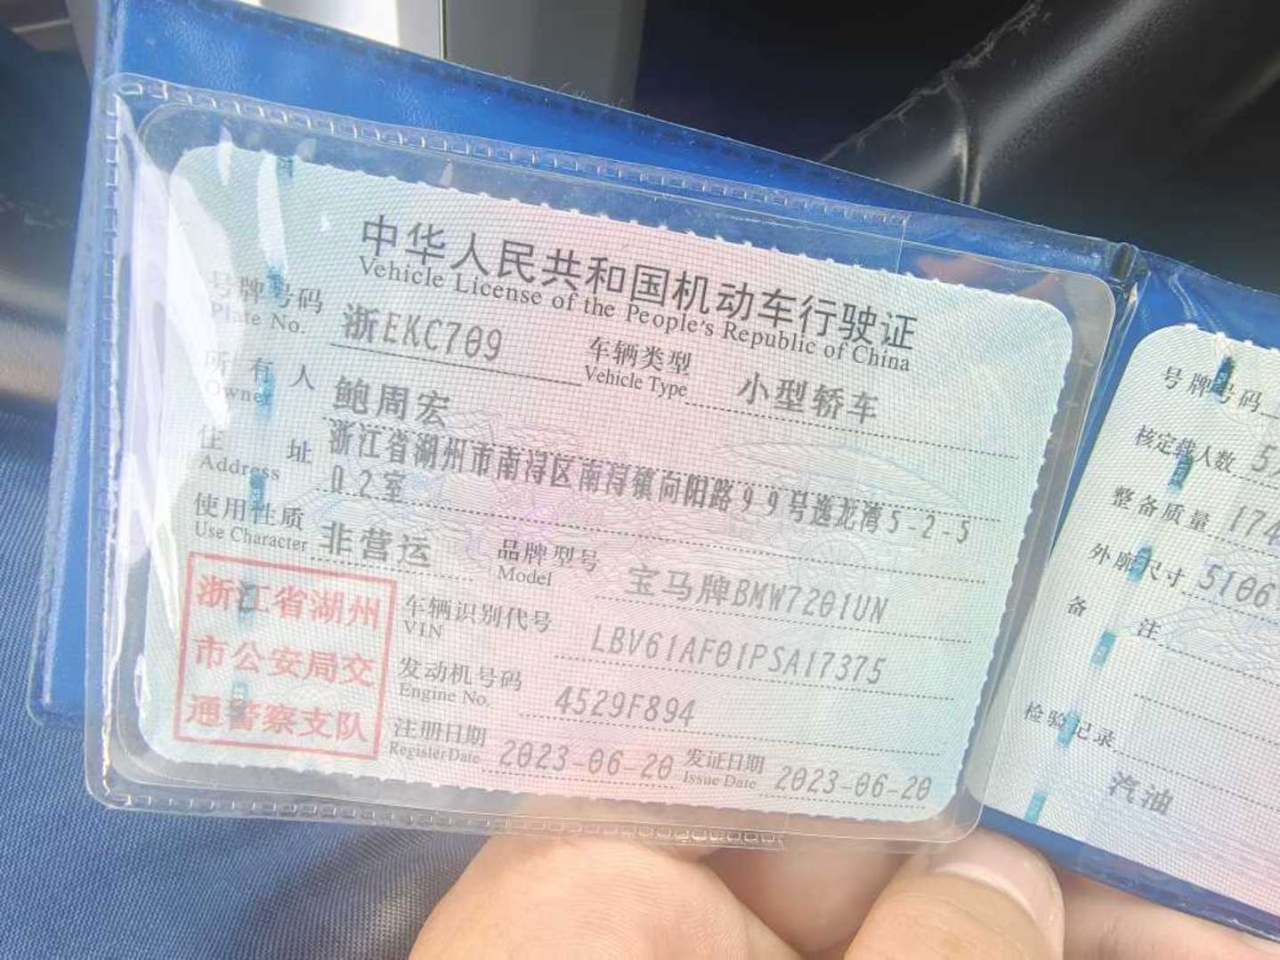 中华人民共和国机动车行驶证
Vehicle License of the People's Republic of China
号牌号码 浙EKC709 车辆类型 小型轿车
Plate No. Vehicle Type
所有人 鲍周宏
Owner
住址 浙江省湖州市南浔区南浔镇向阳路99号逸龙湾5-2-5
Address 02室
使用性质 非营运 品牌型号 宝马牌BMW7201UN
Use Character Model
浙江省湖州
市公安局交
通警察支队
车辆识别代号 LBV61AF01PSA17375
VIN
发动机号码 4529F894
Engine No.
注册日期 2023-06-20 发证日期 2023-06-20
Register Date Issue Date
号牌号码
核定载人数 5
整备质量 174
外廓尺寸 5106
备注
检验记录
汽油